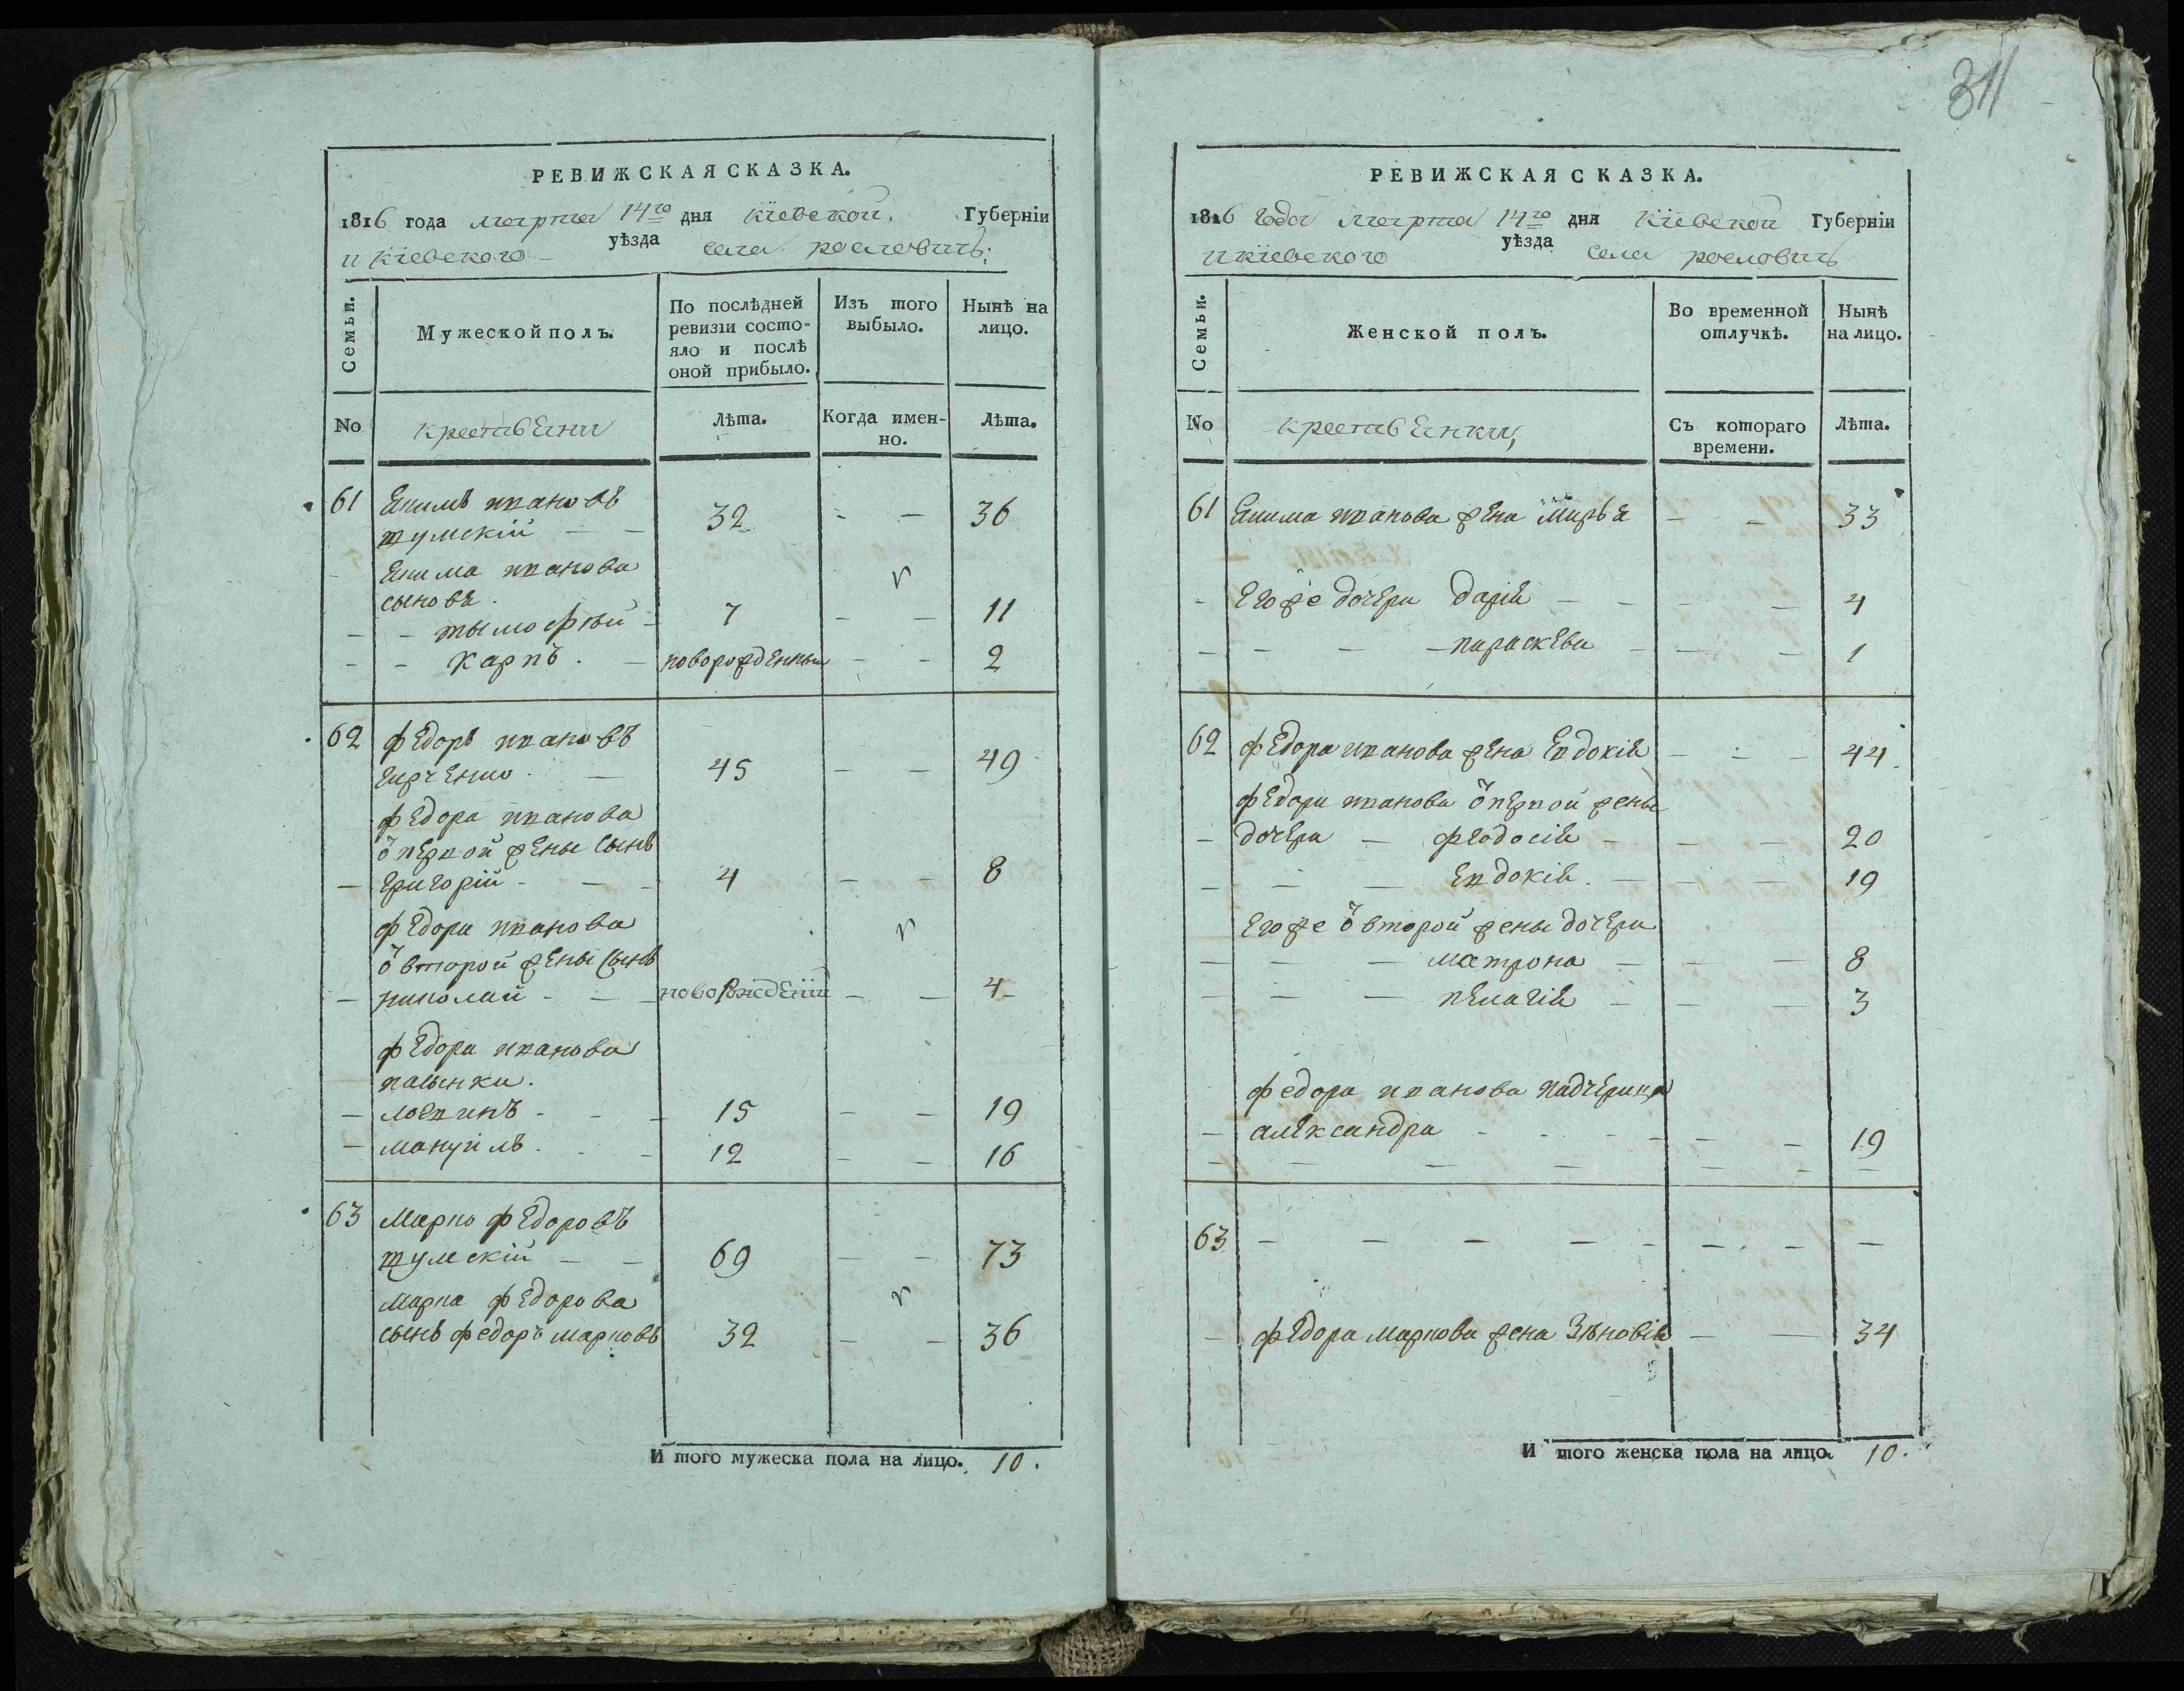 311
РЕВИЖСКАЯ СКАЗКА.
1816 года марта 14го дня кіевской Губерніи
и кіевского уѣзда села рословичъ
Семьи.
Мужеской полъ.
По послѣдней ревизіи состояло и послѣ оной прибыло.
Изъ того выбыло.
Нынѣ на лицо.
No
Лѣта.
Когда именно.
Лѣта.
61 Екимъ ивановъ
тумскій — — 32 - — 36
Екима иванова
сынове
- - тымофей - 7 - - 11
- - карпъ. — новорожденный - - 2
62 федоръ ивановъ
— 45 — — 49
федора иванова
ѿ первой жены сынъ
— григорій - — - 4 — — 8
федора иванова
ѿ второй жены сынъ
— николай - — — новорожденій — — 4
федора иванова
пасынки.
— логвинъ - - - 15 — — 19
— мануилъ - - - 12 — — 16
63 Марко федоровъ
тумскій — — 69 — — 73
марка федорова
сынъ федоръ марковъ 32 — — 36
И того мужеска пола на лицо. 10.
РЕВИЖСКАЯ СКАЗКА.
1816 года марта 14го дня кіевской Губерніи
и кіевского уѣзда села рословичъ
Семьи.
Женской полъ.
Во временной отлучкѣ.
Нынѣ на лицо.
No
Съ котораго времени.
Лѣта.
61 Екима иванова жена — — 33
- Егоже дочери дарія — — — — 4
— — — — параскева — — — 1
62 федора иванова жена Евдокія — - — 44
федора иванова ѿ первой жены
— дочери — феодосія — — — 20
— — — Евдокія. — — — 19
Егоже ѿ второй жены дочери
— — — матрона — — — 8
— — — пелагія — — — 3
федора иванова падчерица
— александра - - - — — — 19
63 — — — — — — — —
— федора маркова жена Зѣновія — — 34
И того женска пола на лицо. 10.